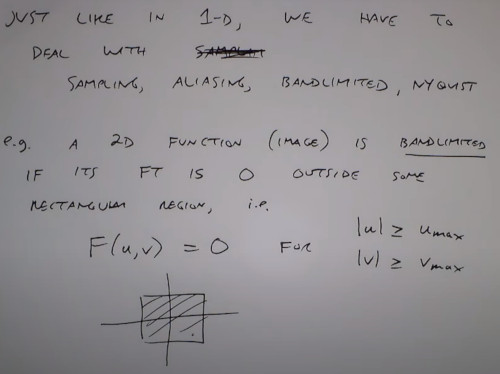 JUST LIKE IN 1-D, WE HAVE TO
DEAL WITH
SAMPLING, ALIASING, BANDLIMITED, NYQUIST
e.g. A 2D FUNCTION (IMAGE) IS BANDLIMITED
IF ITS FT IS 0 OUTSIDE SOME
RECTANGULAR REGION, i.e.
F(u,v) = 0 FOR |u| ≥ umax
|v| ≥ vmax